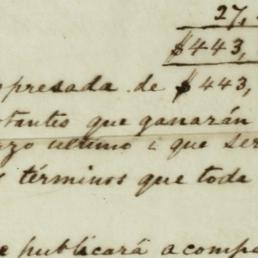 27,
$443,
presada de $443,
tantes que ganarán
zo ultimo i que ser
términos que toda
publicará a compa